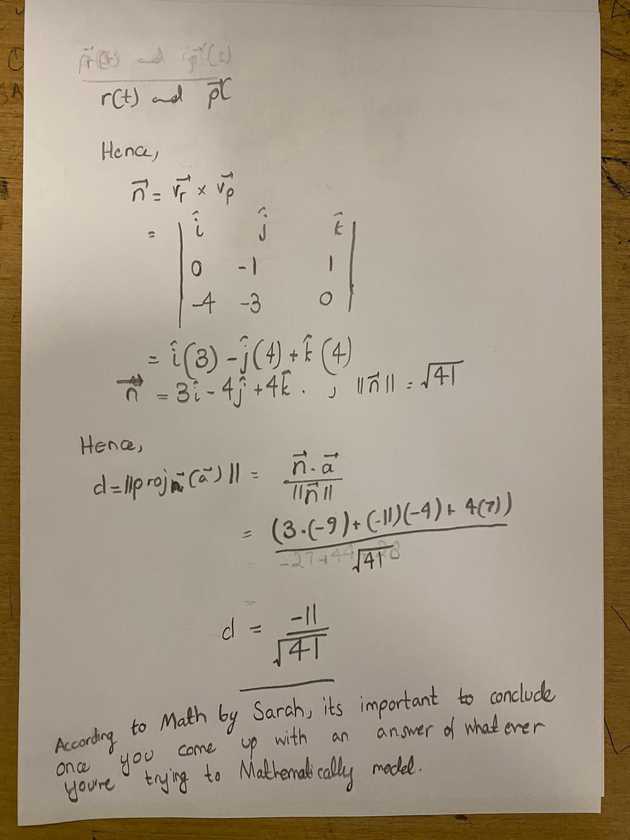 r(t) and p⃗(
r(t) and p⃗(
Hence,
n⃗ = v⃗r × v⃗p
= | î ĵ k̂ |
| 0 -1 1 |
| -4 -3 0 |
= î(3) - ĵ(4) + k̂(4)
n⃗ = 3î - 4ĵ + 4k̂ . ; ||n⃗|| = √41
Hence,
d = ||proj n⃗ (a⃗)|| = n⃗ · a⃗ / ||n⃗||
= (3·(-9) + (-11)(-4) + 4(7)) / √41
-27+44+28
d = -11 / √41
According to Math by Sarah, its important to conclude
once you come up with an answer of what ever
you're trying to Mathematically model.